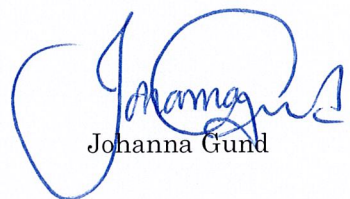 Johanna Gund
Johanna Gund